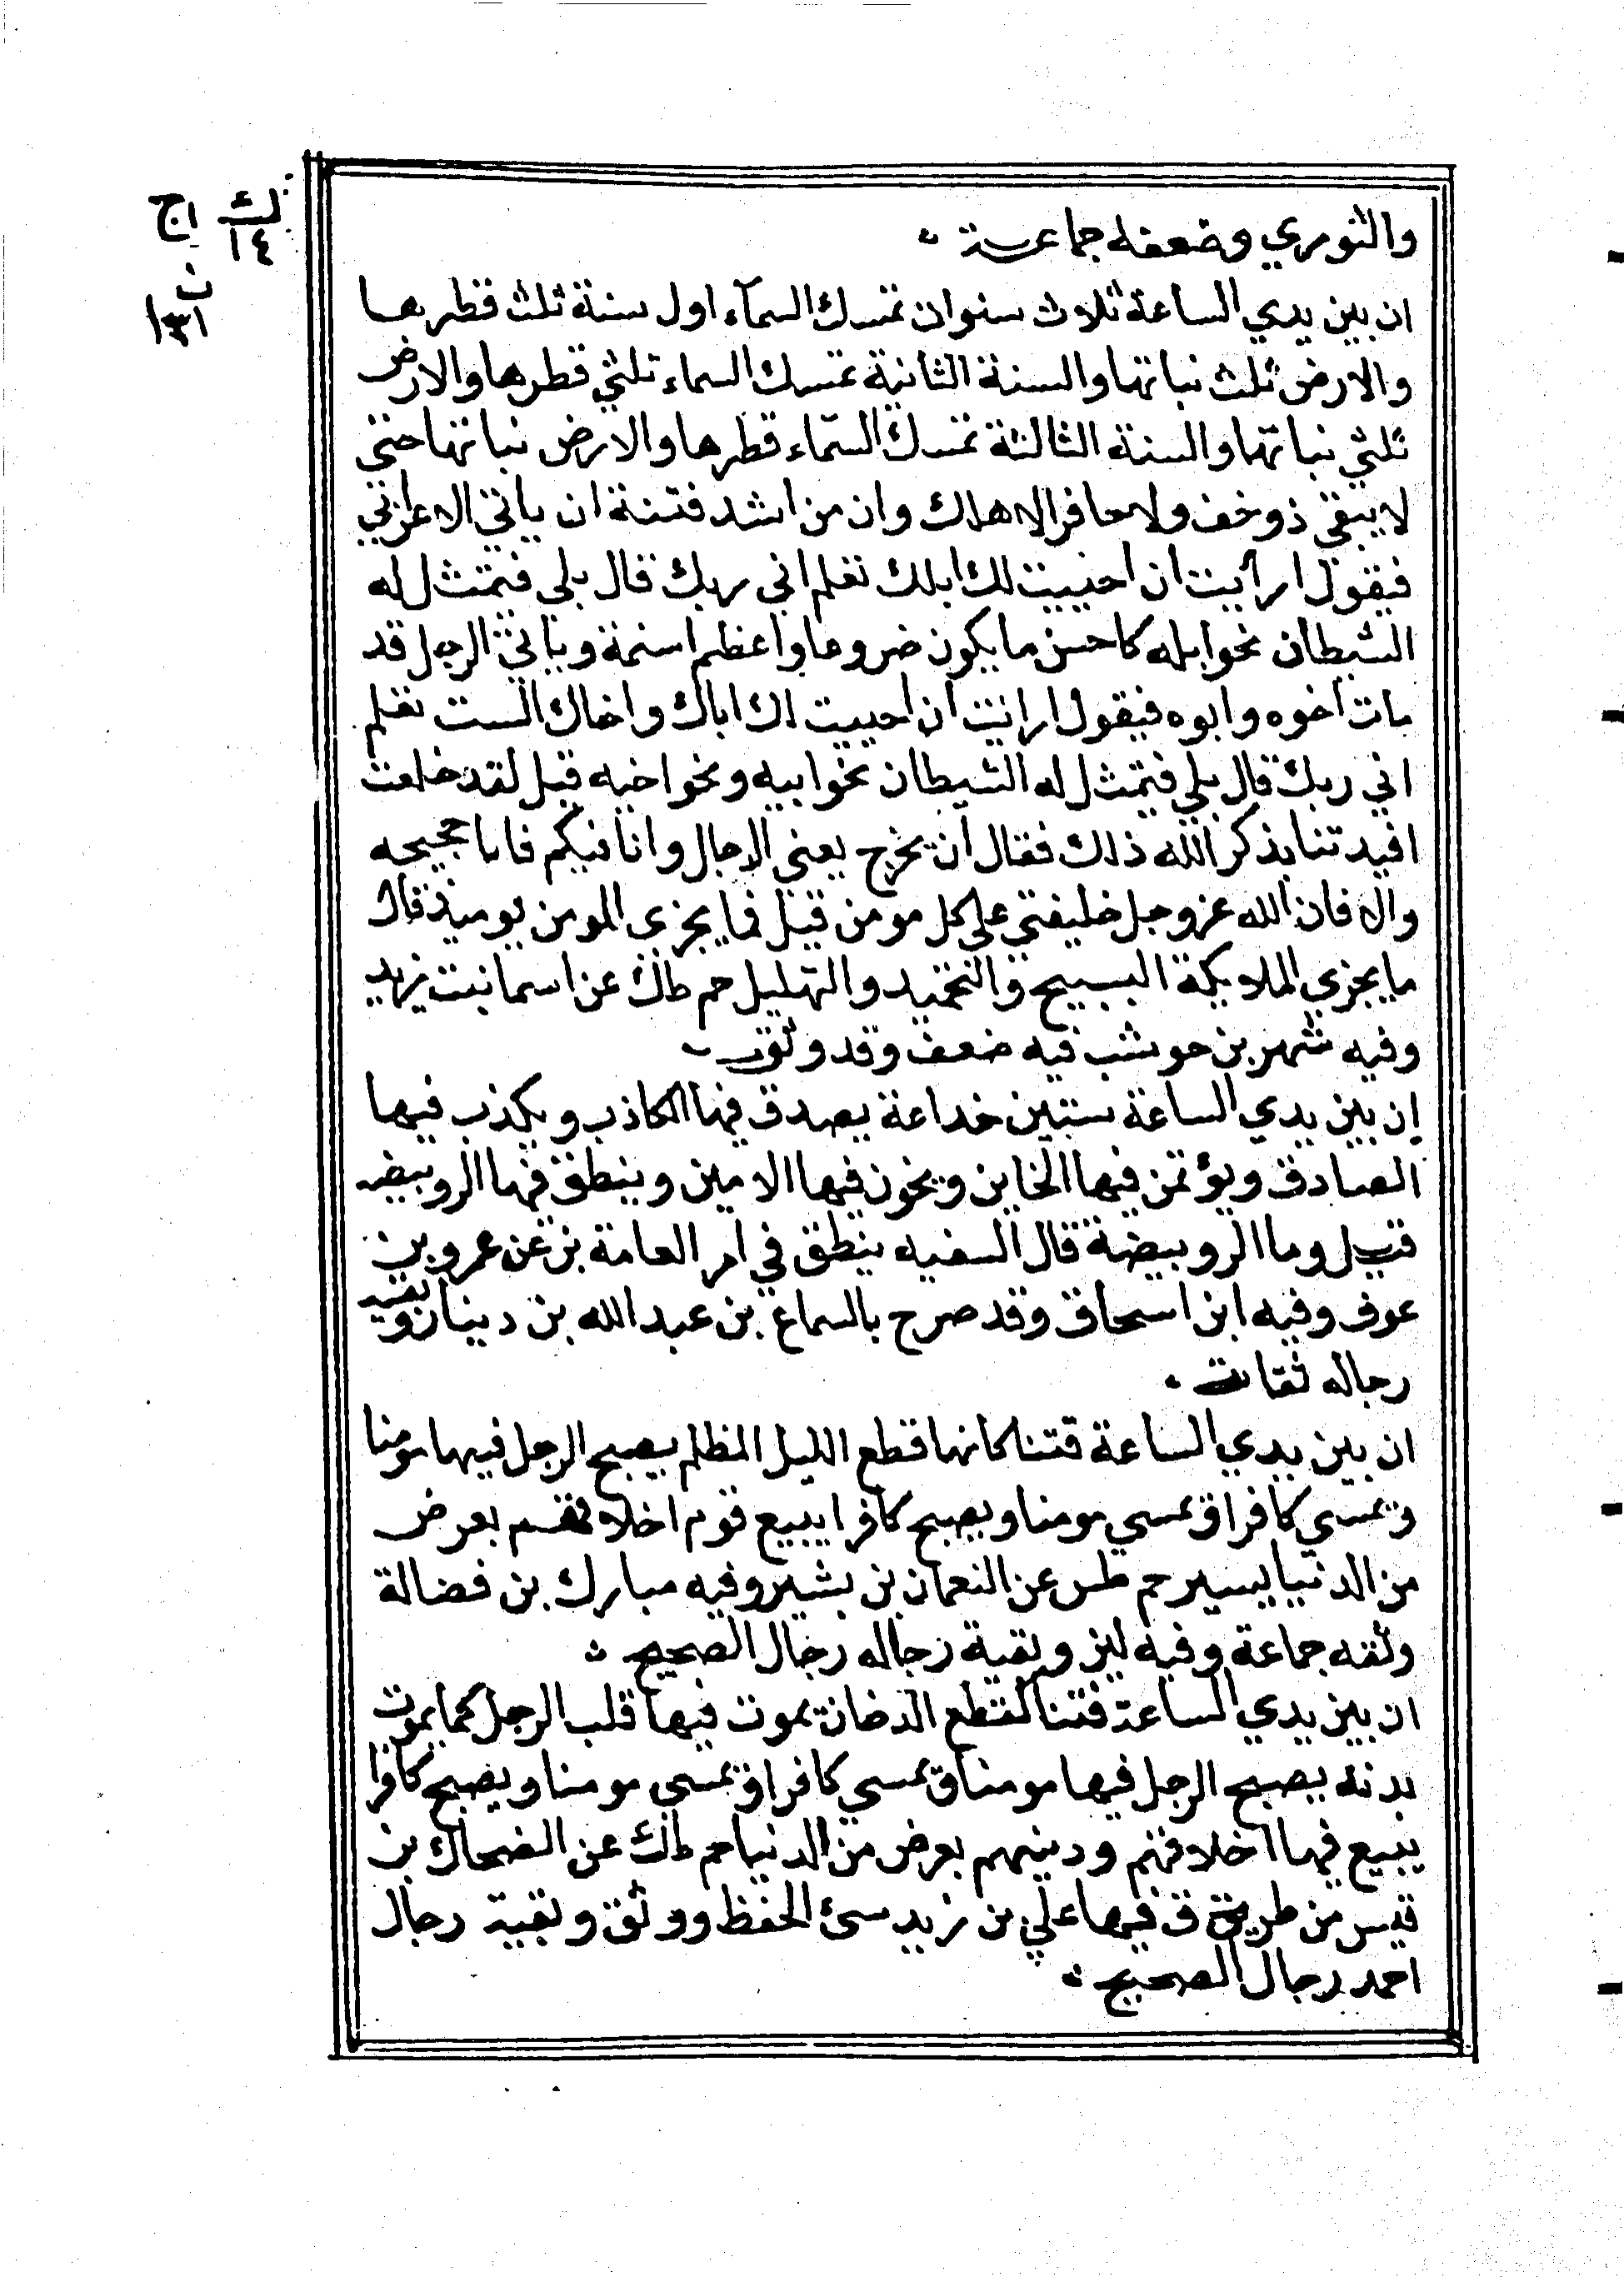 والثوري وضعفه جماعة
ان بين يدي الساعة ثلاث سنوان تمسك السمآء اول سنة ثلث قطرها
والارض ثلث نباتها والسنة الثانية تمسك السماء ثلثي قطرها والارض
ثلثي نباتها والسنة الثالثة تمسك السماء قطرها والارض نباتها حتى
لا يبقى ذو خف ولا حافر الا هلك وان من اشد فتنة ان ياتي الاعرابي
فيقول ارأيت ان احييت لك ابلك تعلم اني ربك قال بلى فيتمثل له
الشيطان نحو ابله كاحسن ما يكون ضروعا واعظم اسنمة وياتي الرجل قد
مات اخوه وابوه فيقول ارايت ان احييت لك اباك واخاك الست تعلم
اني ربك قال بلى فيتمثل له الشيطان نحو ابيه ونحو اخيه قيل لقد خلعت
افيدتنا بذكر الله ذلك فقال ان يخرج يعني الدجال وانا فيكم فانا حجيجه
والا فان الله عز وجل خليفتي على كل مومن قيل فما يجزي المومن يوميذ قال
ما يجزي الملايكة التسبيح والتحميد والتهليل حم طك عن اسما بنت يزيد
وفيه شهر بن حوشب فيه ضعف وقد وثق
ان بين يدي الساعة سنين خداعة يصدق فيها الكاذب ويكذب فيها
الصادق ويؤتمن فيها الخاين ويخون فيها الامين وينطق فيها الرويبضه
قيل وما الرويبضة قال السفيه ينطق في امر العامة بز عن عمرو بن
عوف وفيه ابن اسحاق وقد صرح بالسماع بن عبد الله بن دينار وبقيه
رجاله ثقات
ان بين يدي الساعة فتنا كانها قطع الليل المظلم يصبح الرجل فيها مومنا
ويمسي كافرا ويمسي مومنا ويصبح كافرا يبيع قوم اخلاقهم بعرض
من الدنيا يسير حم طس عن النعمان بن بشير وفيه مبارك بن فضالة
وثقه جماعة وفيه لين وبقية رجاله رجال الصحيح
ان بين يدي الساعة فتنا كقطع الدخان يموت فيها قلب الرجل كما يموت
بدنه يصبح الرجل فيها مومنا ويمسي كافرا ويمسي مومنا ويصبح كافرا
يبيع فيها اخلاقهم ودينهم بعرض من الدنيا حم طك عن الضحاك بن
قيس من طريق فيها علي بن زيد سئ الحفظ ووثق وبقية رجال
احمد رجال الصحيح
ك ١ج
١٤
ن
١٣١